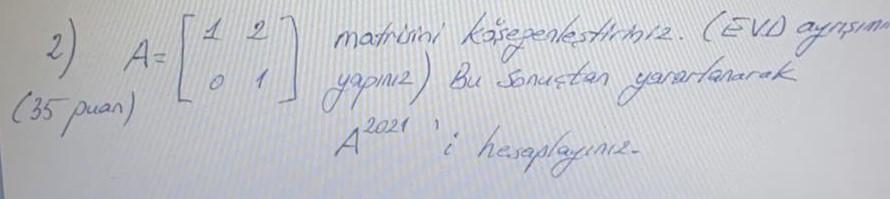 2) A= [ 1 2 matrisini köşegenleştiriniz. (EVD ayrışımı
(35 puan) 0 1 ] yapınız) Bu sonuçtan yararlanarak
A²⁰²¹ 'i hesaplayınız.